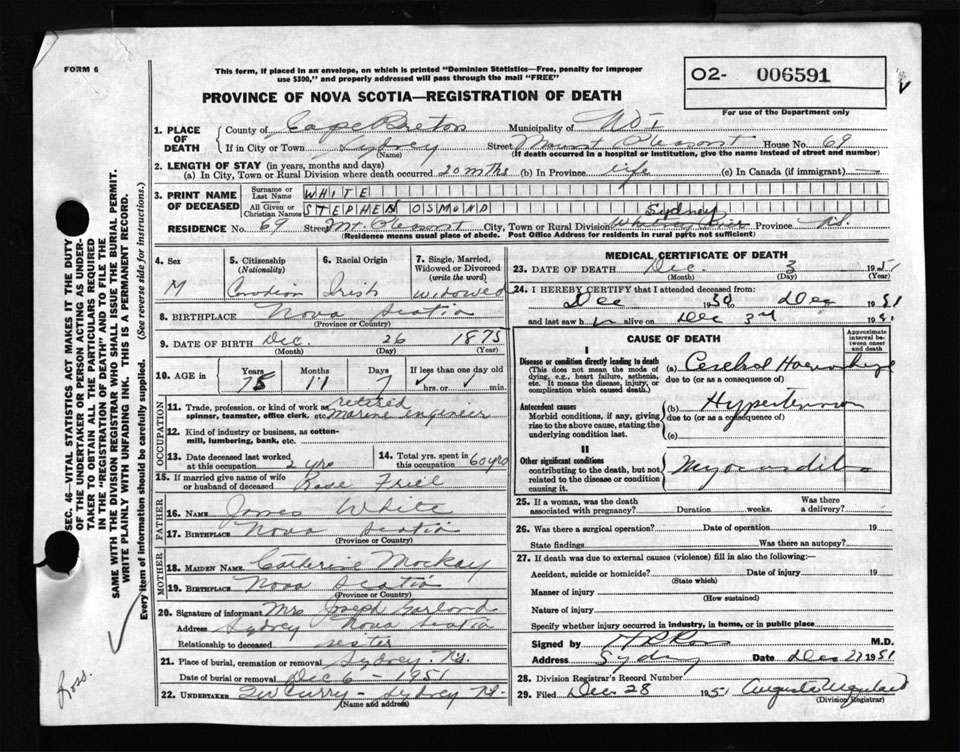 FORM 6
This form, if placed in an envelope, on which is printed "Dominion Statistics—Free, penalty for improper
use $300," and properly addressed will pass through the mail "FREE"
O2- 006591
For use of the Department only
PROVINCE OF NOVA SCOTIA—REGISTRATION OF DEATH
1. PLACE OF DEATH
County of Cape Breton Municipality of No 1
If in City or Town Sydney (Name) Street Mount Pleasant House No. 69
(If death occurred in a hospital or institution, give the name instead of street and number)
2. LENGTH OF STAY (in years, months and days)
(a) In City, Town or Rural Division where death occurred 20 mths (b) In Province life (c) In Canada (if immigrant) —
3. PRINT NAME OF DECEASED
Surname or Last Name WHITE
All Given or Christian Names STEPHEN OSMOND
Sydney
RESIDENCE No. 69 Street Mt Pleasant City, Town or Rural Division Whitney Pier Province N.S.
(Residence means usual place of abode. Post Office Address for residents in rural parts not sufficient)
4. Sex
M
5. Citizenship (Nationality)
Canadian
6. Racial Origin
Irish
7. Single, Married, Widowed or Divorced (write the word)
widowed
8. BIRTHPLACE Nova Scotia
(Province or Country)
9. DATE OF BIRTH Dec. 26 1875
(Month) (Day) (Year)
10. AGE in
Years 75 Months 11 Days 7 If less than one day old
hrs. or min.
OCCUPATION
11. Trade, profession, or kind of work as spinner, teamster, office clerk, etc. retired marine engineer
12. Kind of industry or business, as cotton-mill, lumbering, bank, etc.
13. Date deceased last worked at this occupation 2 yrs
14. Total yrs. spent in this occupation 60 yrs
15. If married give name of wife or husband of deceased Rose Friel
FATHER
16. NAME James White
17. BIRTHPLACE Nova Scotia
(Province or Country)
MOTHER
18. MAIDEN NAME Catherine McKay
19. BIRTHPLACE Nova Scotia
(Province or Country)
20. Signature of informant Mrs Joseph Garland
Address Sydney Nova Scotia
Relationship to deceased sester
21. Place of burial, cremation or removal Sydney. N.S.
Date of burial or removal Dec 6 - 1951
22. UNDERTAKER Curry - Sydney N.S.
(Name and Address)
MEDICAL CERTIFICATE OF DEATH
23. DATE OF DEATH Dec. 3 1951
(Month) (Day) (Year)
24. I HEREBY CERTIFY that I attended deceased from:
Dec 1950 Dec 1951
and last saw h alive on Dec 3rd 1951
CAUSE OF DEATH
Approximate interval between onset and death
I
Disease or condition directly leading to death
(This does not mean the mode of dying, e.g., heart failure, asthenia, etc. It means the disease, injury, or complication which caused death.)
(a) Cerebral Haemorrhage
due to (or as a consequence of)
Antecedent causes
Morbid conditions, if any, giving rise to the above cause, stating the underlying condition last.
(b) Hypertension
due to (or as a consequence of)
(c)
II
Other significant conditions
contributing to the death, but not related to the disease or condition causing it.
Myocarditis
25. If a woman, was the death associated with pregnancy? Duration weeks. Was there a delivery?
26. Was there a surgical operation? Date of operation 19
State findings Was there an autopsy?
27. If death was due to external causes (violence) fill in also the following:—
Accident, suicide or homicide? Date of injury 19
(State which)
Manner of injury
(How sustained)
Nature of injury
Specify whether injury occurred in industry, in home, or in public place
Signed by Ross M.D.
Address Sydney Date Dec 27 1951
28. Division Registrar's Record Number
29. Filed Dec. 28 1951
(Division Registrar)
SEC. 46—VITAL STATISTICS ACT MAKES IT THE DUTY
OF THE UNDERTAKER OR PERSON ACTING AS UNDERTAKER
TO OBTAIN ALL THE PARTICULARS REQUIRED
IN THE "REGISTRATION OF DEATH" AND TO FILE THE
SAME WITH THE DIVISION REGISTRAR WHO SHALL ISSUE THE BURIAL PERMIT.
WRITE PLAINLY WITH UNFADING INK. THIS IS A PERMANENT RECORD.
Every item of information should be carefully supplied. (See reverse side for instructions.)
Ross.